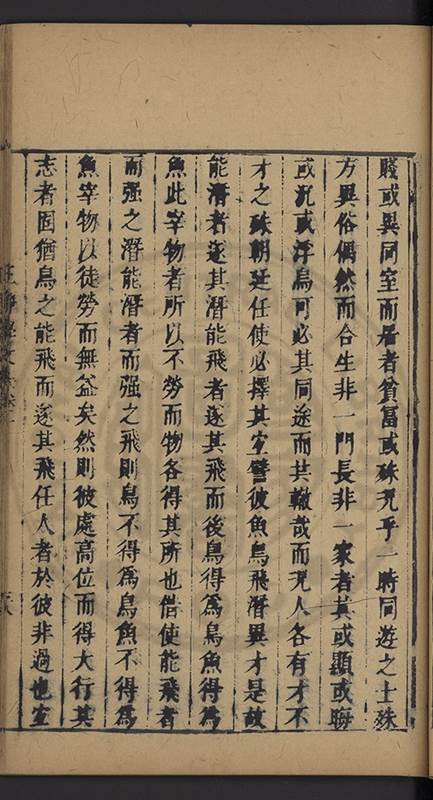 賤或異同室而居者貧富或殊況乎一時同遊之士殊
方異俗偶然而合生非一門長非一家者其或顯或晦
或沉或浮烏可必其同途而共轍哉而況人各有才不
才之殊朝廷任使必擇其宜譬彼魚鳥飛潛異才是故
能潛者遂其潛能飛者遂其飛而後鳥得爲鳥魚得爲
魚此宰物者所以不勞而物各得其所也借使能飛者
而强之潛能潛者而强之飛則鳥不得爲鳥魚不得爲
魚宰物以徒勞而無益矣然則彼處高位而得大行其
志者固猶鳥之能飛而遂其飛任人者於彼非過也宜